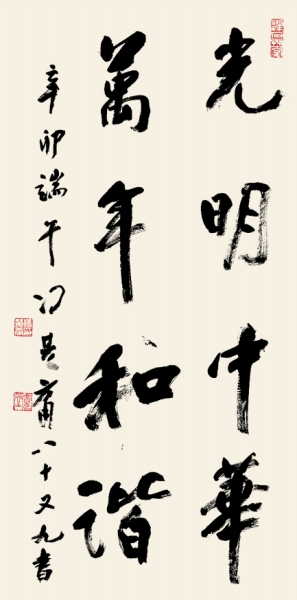 光明中華
萬年和諧
辛卯端午冯其庸八十又九書